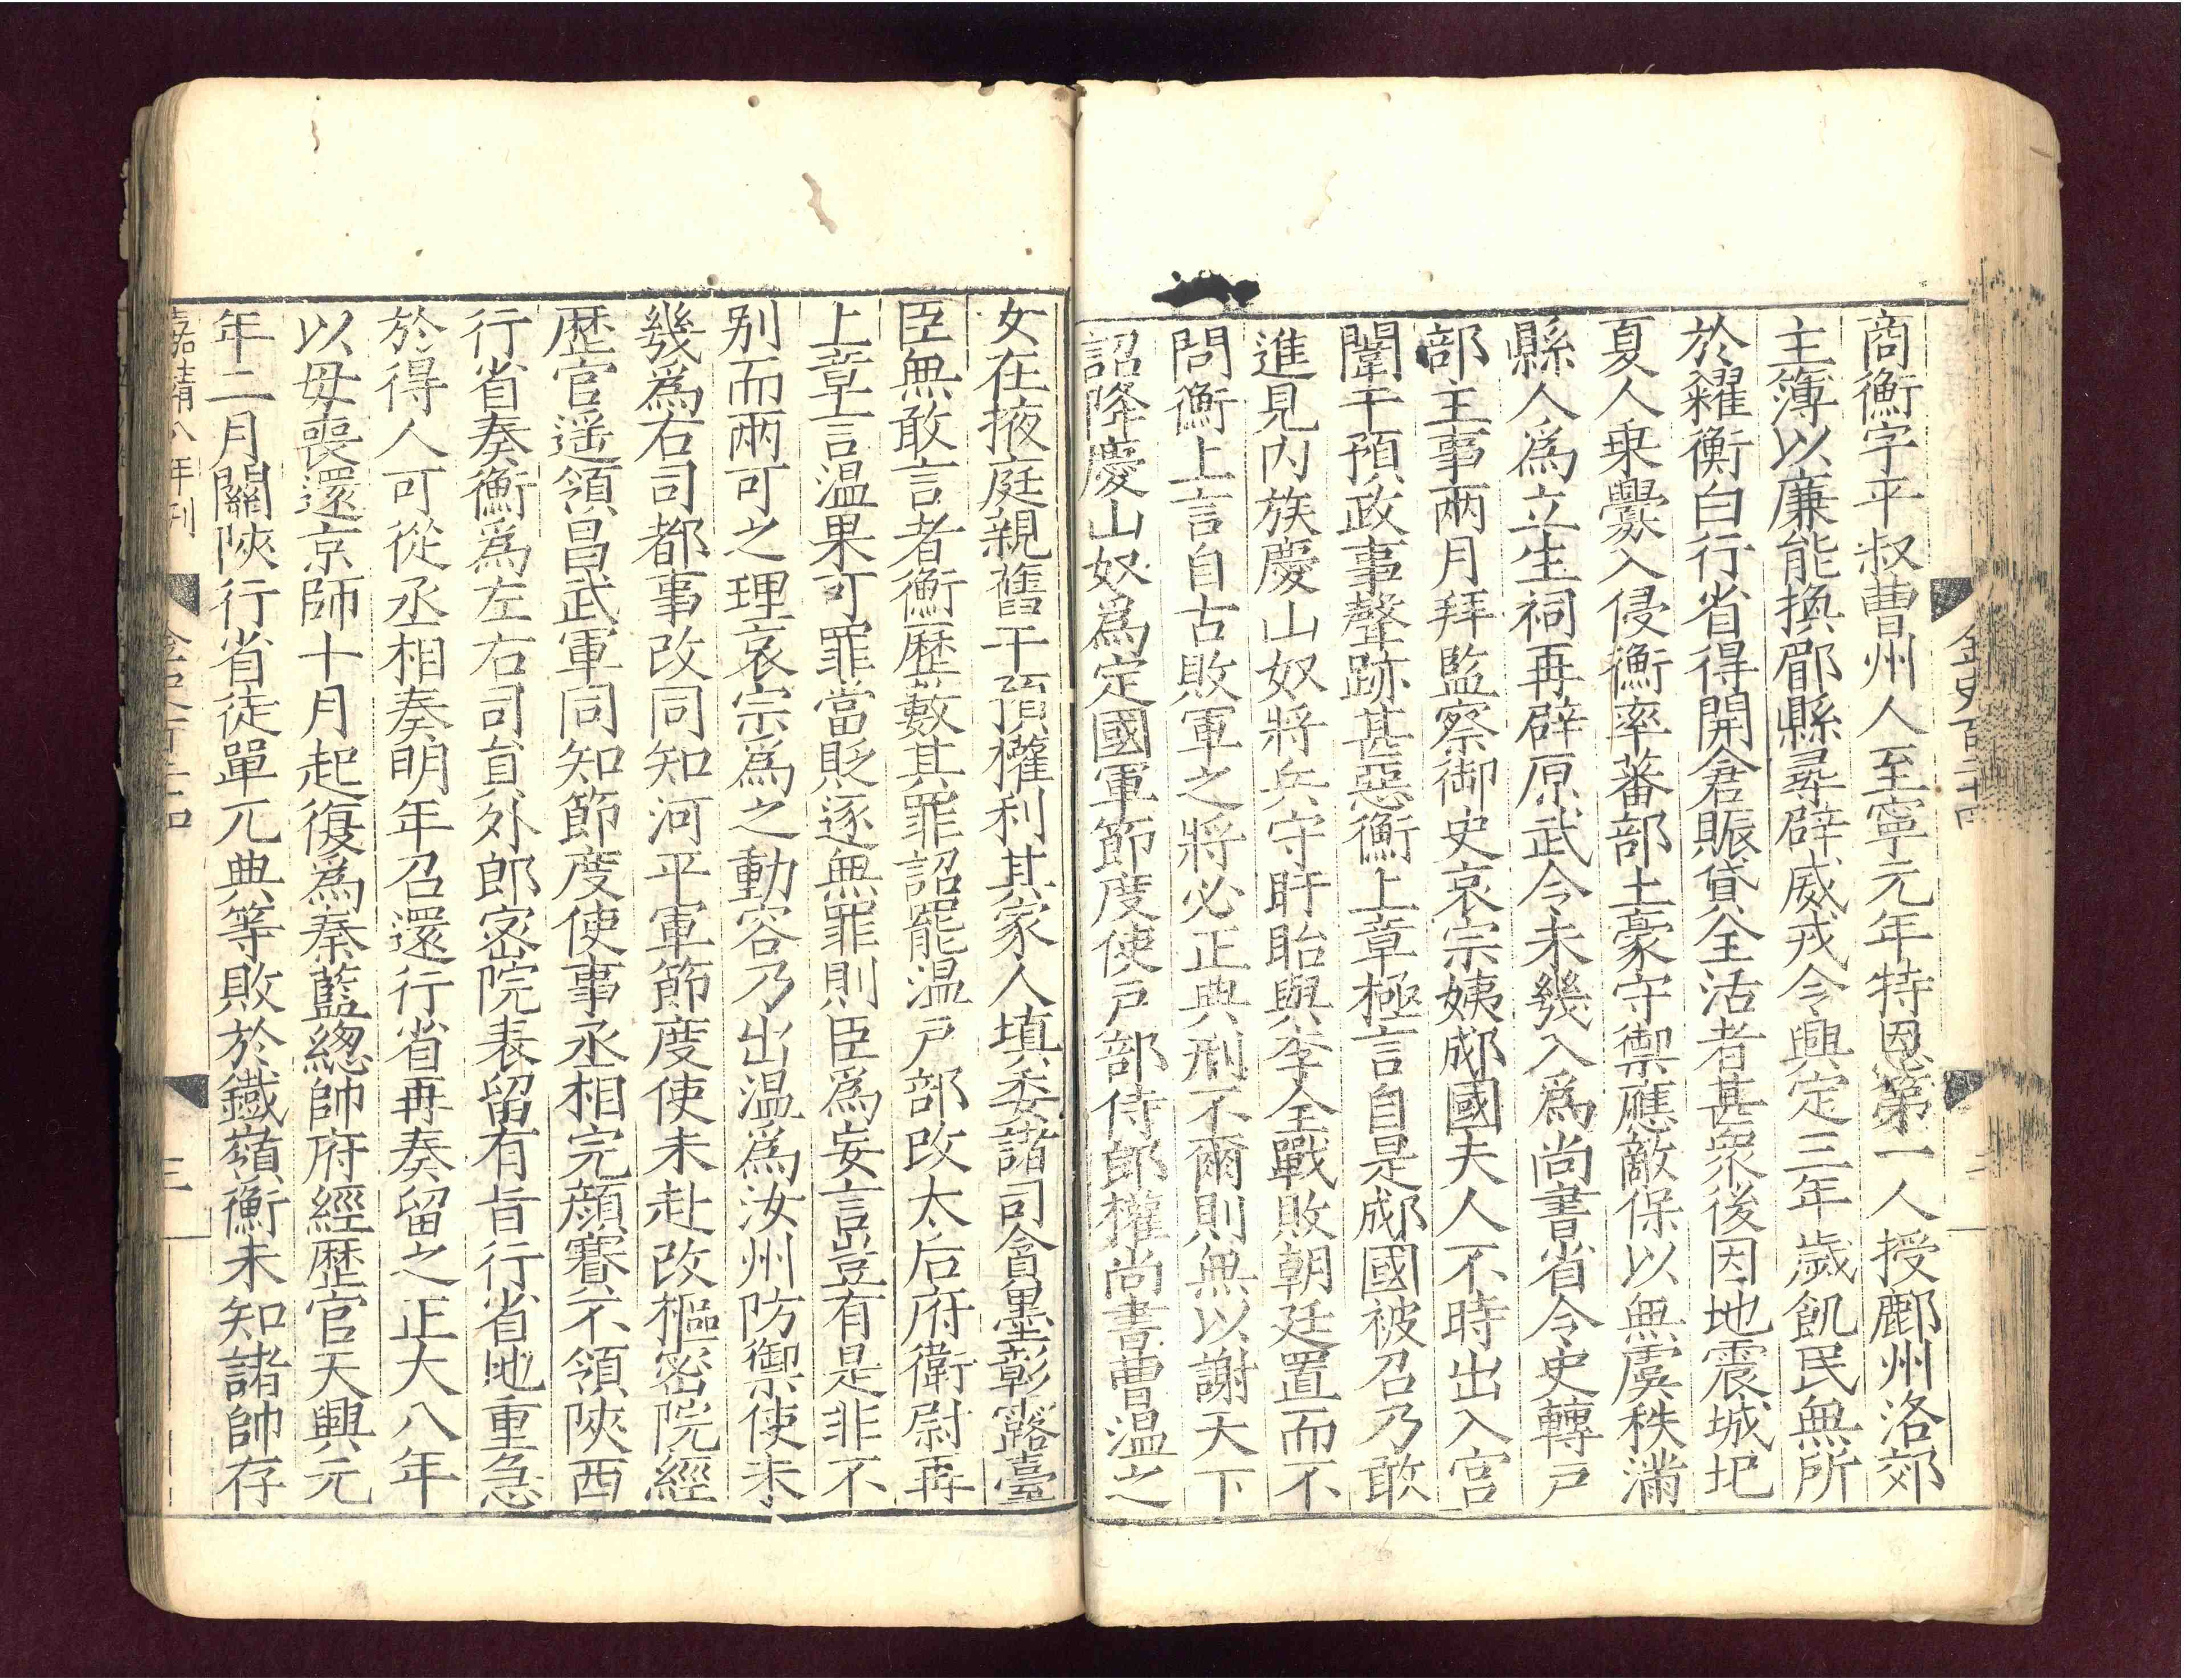 金史百二十四
二
商衡字平叔曹州人至寧元年特恩第一人授鄜州洛郊
主簿以廉能換郿縣尋辟威戎令興定三年歲飢民無所
於糴衡白行省得開倉賑貸全活者甚衆後因地震城圮
夏人乗釁入侵衡率蕃部土豪守禦應敵保以無虞秩滿
縣人爲立生祠再辟原武令未幾入爲尚書省令史轉戸
部主事兩月拜監察御史哀宗姨郕國夫人不時出入宮
闈干預政事聲跡甚惡衡上章極言自是郕國被召乃敢
進見内族慶山奴將兵守盱眙與李全戰敗朝廷置而不
問衡上言自古敗軍之將必正典刑不爾則無以謝天下
詔降慶山奴爲定國軍節度使戸部侍郎權尚書曹温之
女在掖庭親舊干預權利其家人填委諸司貪墨彰露臺
臣無敢言者衡歷數其罪詔罷温戸部改太后府衛尉再
上章言温果可罪當貶逐無罪則臣爲妄言豈有是非不
别而兩可之理哀宗爲之動容乃出温爲汝州防禦使未
幾爲右司都事改同知河平軍節度使未赴改樞密院經
歴官遥領昌武軍同知節度使事丞相完顔賽不領陝西
行省奏衡爲左右司員外郎密院表留有旨行省地重急
於得人可從丞相奏明年召還行省再奏留之正大八年
以母喪還京師十月起復爲秦藍總帥府經歴官天興元
年二月關陝行省徒單兀典等敗於鐵嶺衡未知諸帥存
嘉靖八年刊
金史百二十四
三